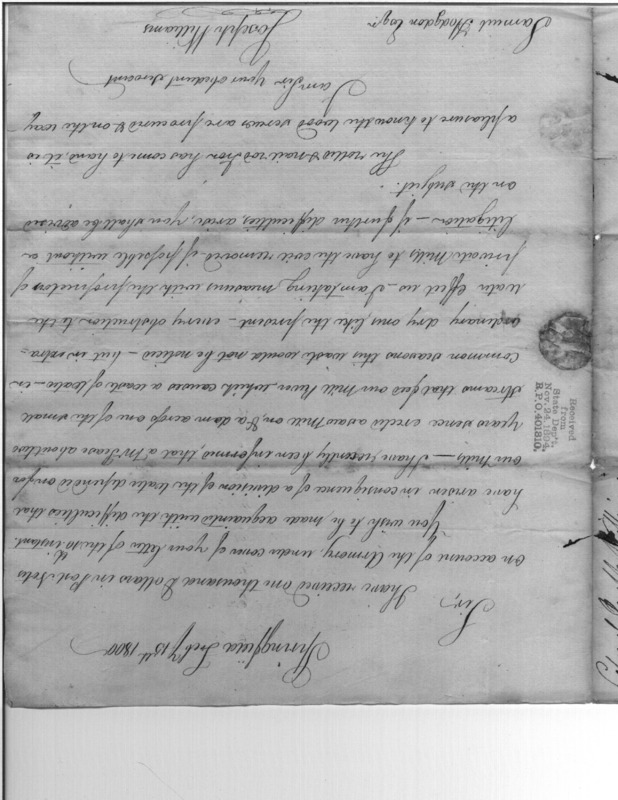 Springfield Feby 15th 1800
Sir,
I have received one thousand Dollars in Post Notes
on account of the Armory, under cover of your letter of the 10th instant.
You wish to be made acquainted with the difficulties that
have arisen in consequence of a division of the water depended on for
our Mills — I have recently been informed, that a Mr Pease about two
years since erected a saw Mill on, & a dam across one of the small
streams that feed our Mill River, which causes a waste of water — in
common seasons this waste would not be noticed — but in extra=
ordinary dry ones, like the present — every obstruction to the
water effect us — I am taking measures with the proprietors of
private Mills to have the evil removed if possible without a
litigation — if further difficulties arise, you shall be advised
on this subject.
The rolled & nail rod Iron has come to hand, it is
a pleasure to know the wood screws are procured & on the way
I am Sir your obedient Servant
Joseph Williams
Samuel Hodgdon Esqr.
Received
from
State Dep't.
Nov. 24, 1894.
R.P.O. 401810.